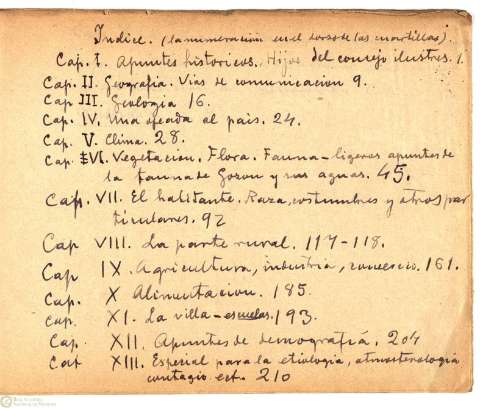 Indice. (la numeración en el dorso de las cuartillas).
Cap. I. Apuntes historicos. Hijos del concejo ilustres. 1.
Cap. II. Geografia. Vias de comunicacion 9.
Cap III. Geologia 16.
Cap. IV. Una ojeada al pais. 24.
Cap. V. Clima. 28.
Cap. VI. Vegetacion, Flora. Fauna - ligeros apuntes de
la fauna de Gozon y sus aguas. 45.
Cap. VII. El habitante. Raza, costumbres y otros par
ticulares. 92
Cap VIII. La parte rural. 117-118.
Cap IX. Agricultura, industria, comercio. 161.
Cap. X Alimentacion. 185.
Cap. XI. La villa - escuelas. 193.
Cap. XII. Apuntes de demografiá. 204
Cap XIII. Especial para la etiologia,
contagio ect. 210